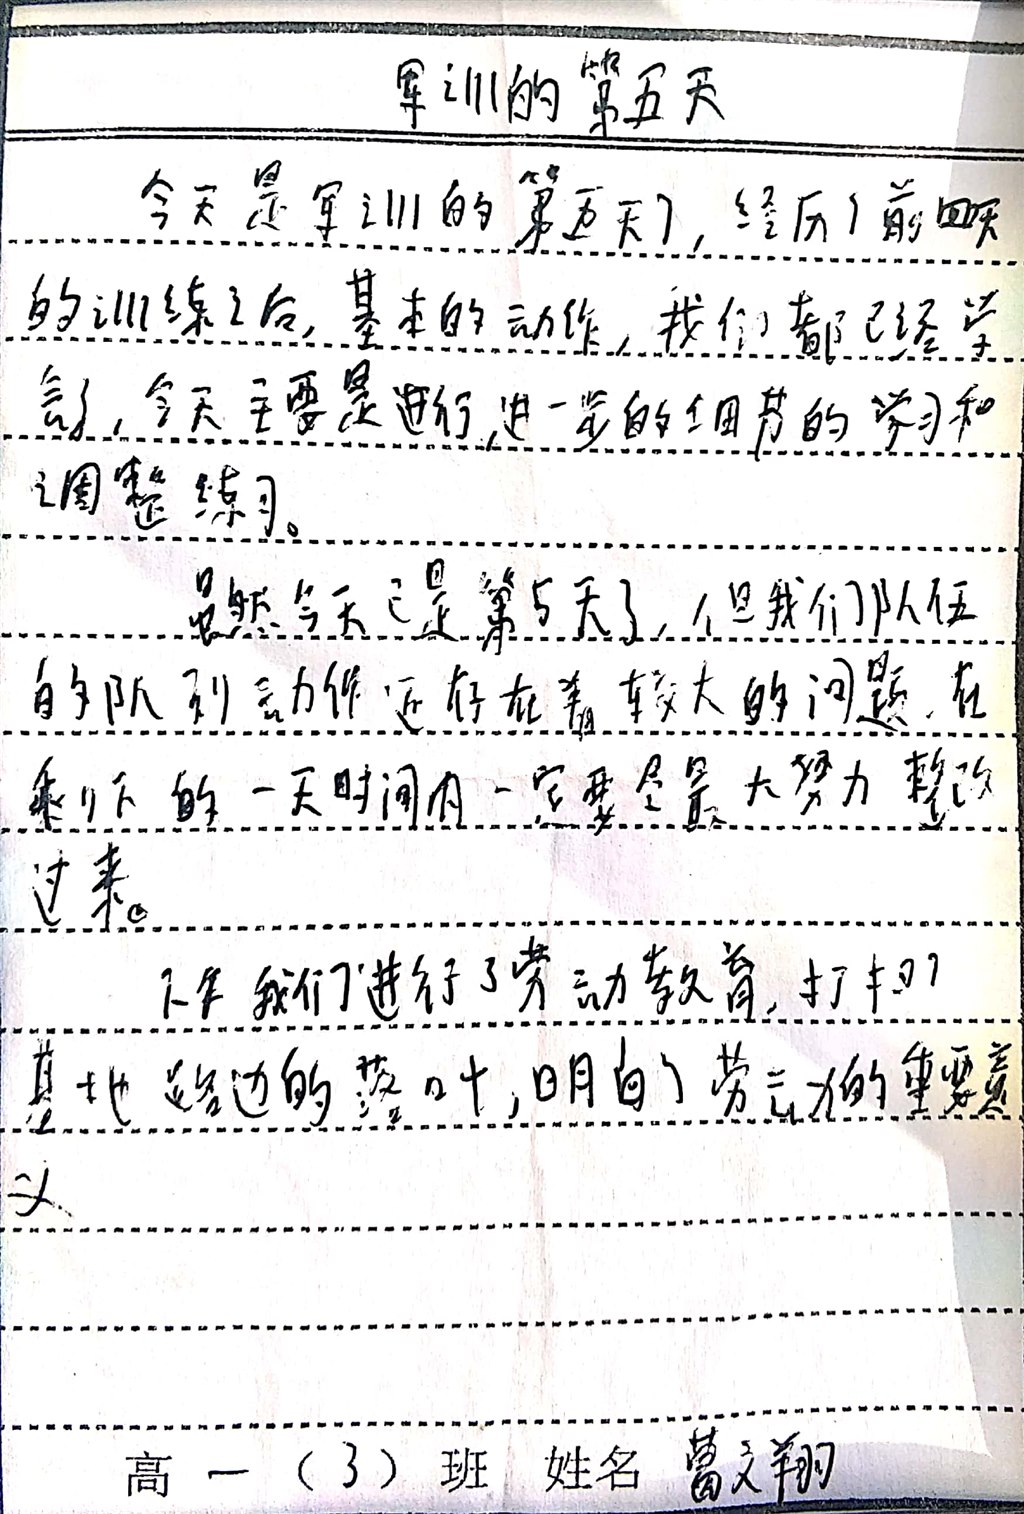 军训的第五天
今天是军训的第五天了，经历了前四天
的训练之后，基本的动作，我们都已经学
会了，今天主要是进行进一步的细节的学习和
调整练习。
虽然今天已是第5天了，但我们队伍
的队列动作还存在着较大的问题，在
剩下的一天时间内一定要尽最大努力整改
过来。
下午我们进行了劳动教育，打扫了
基地路边的落叶，明白了劳动的重要意
义.
高一（3）班 姓名 文翔